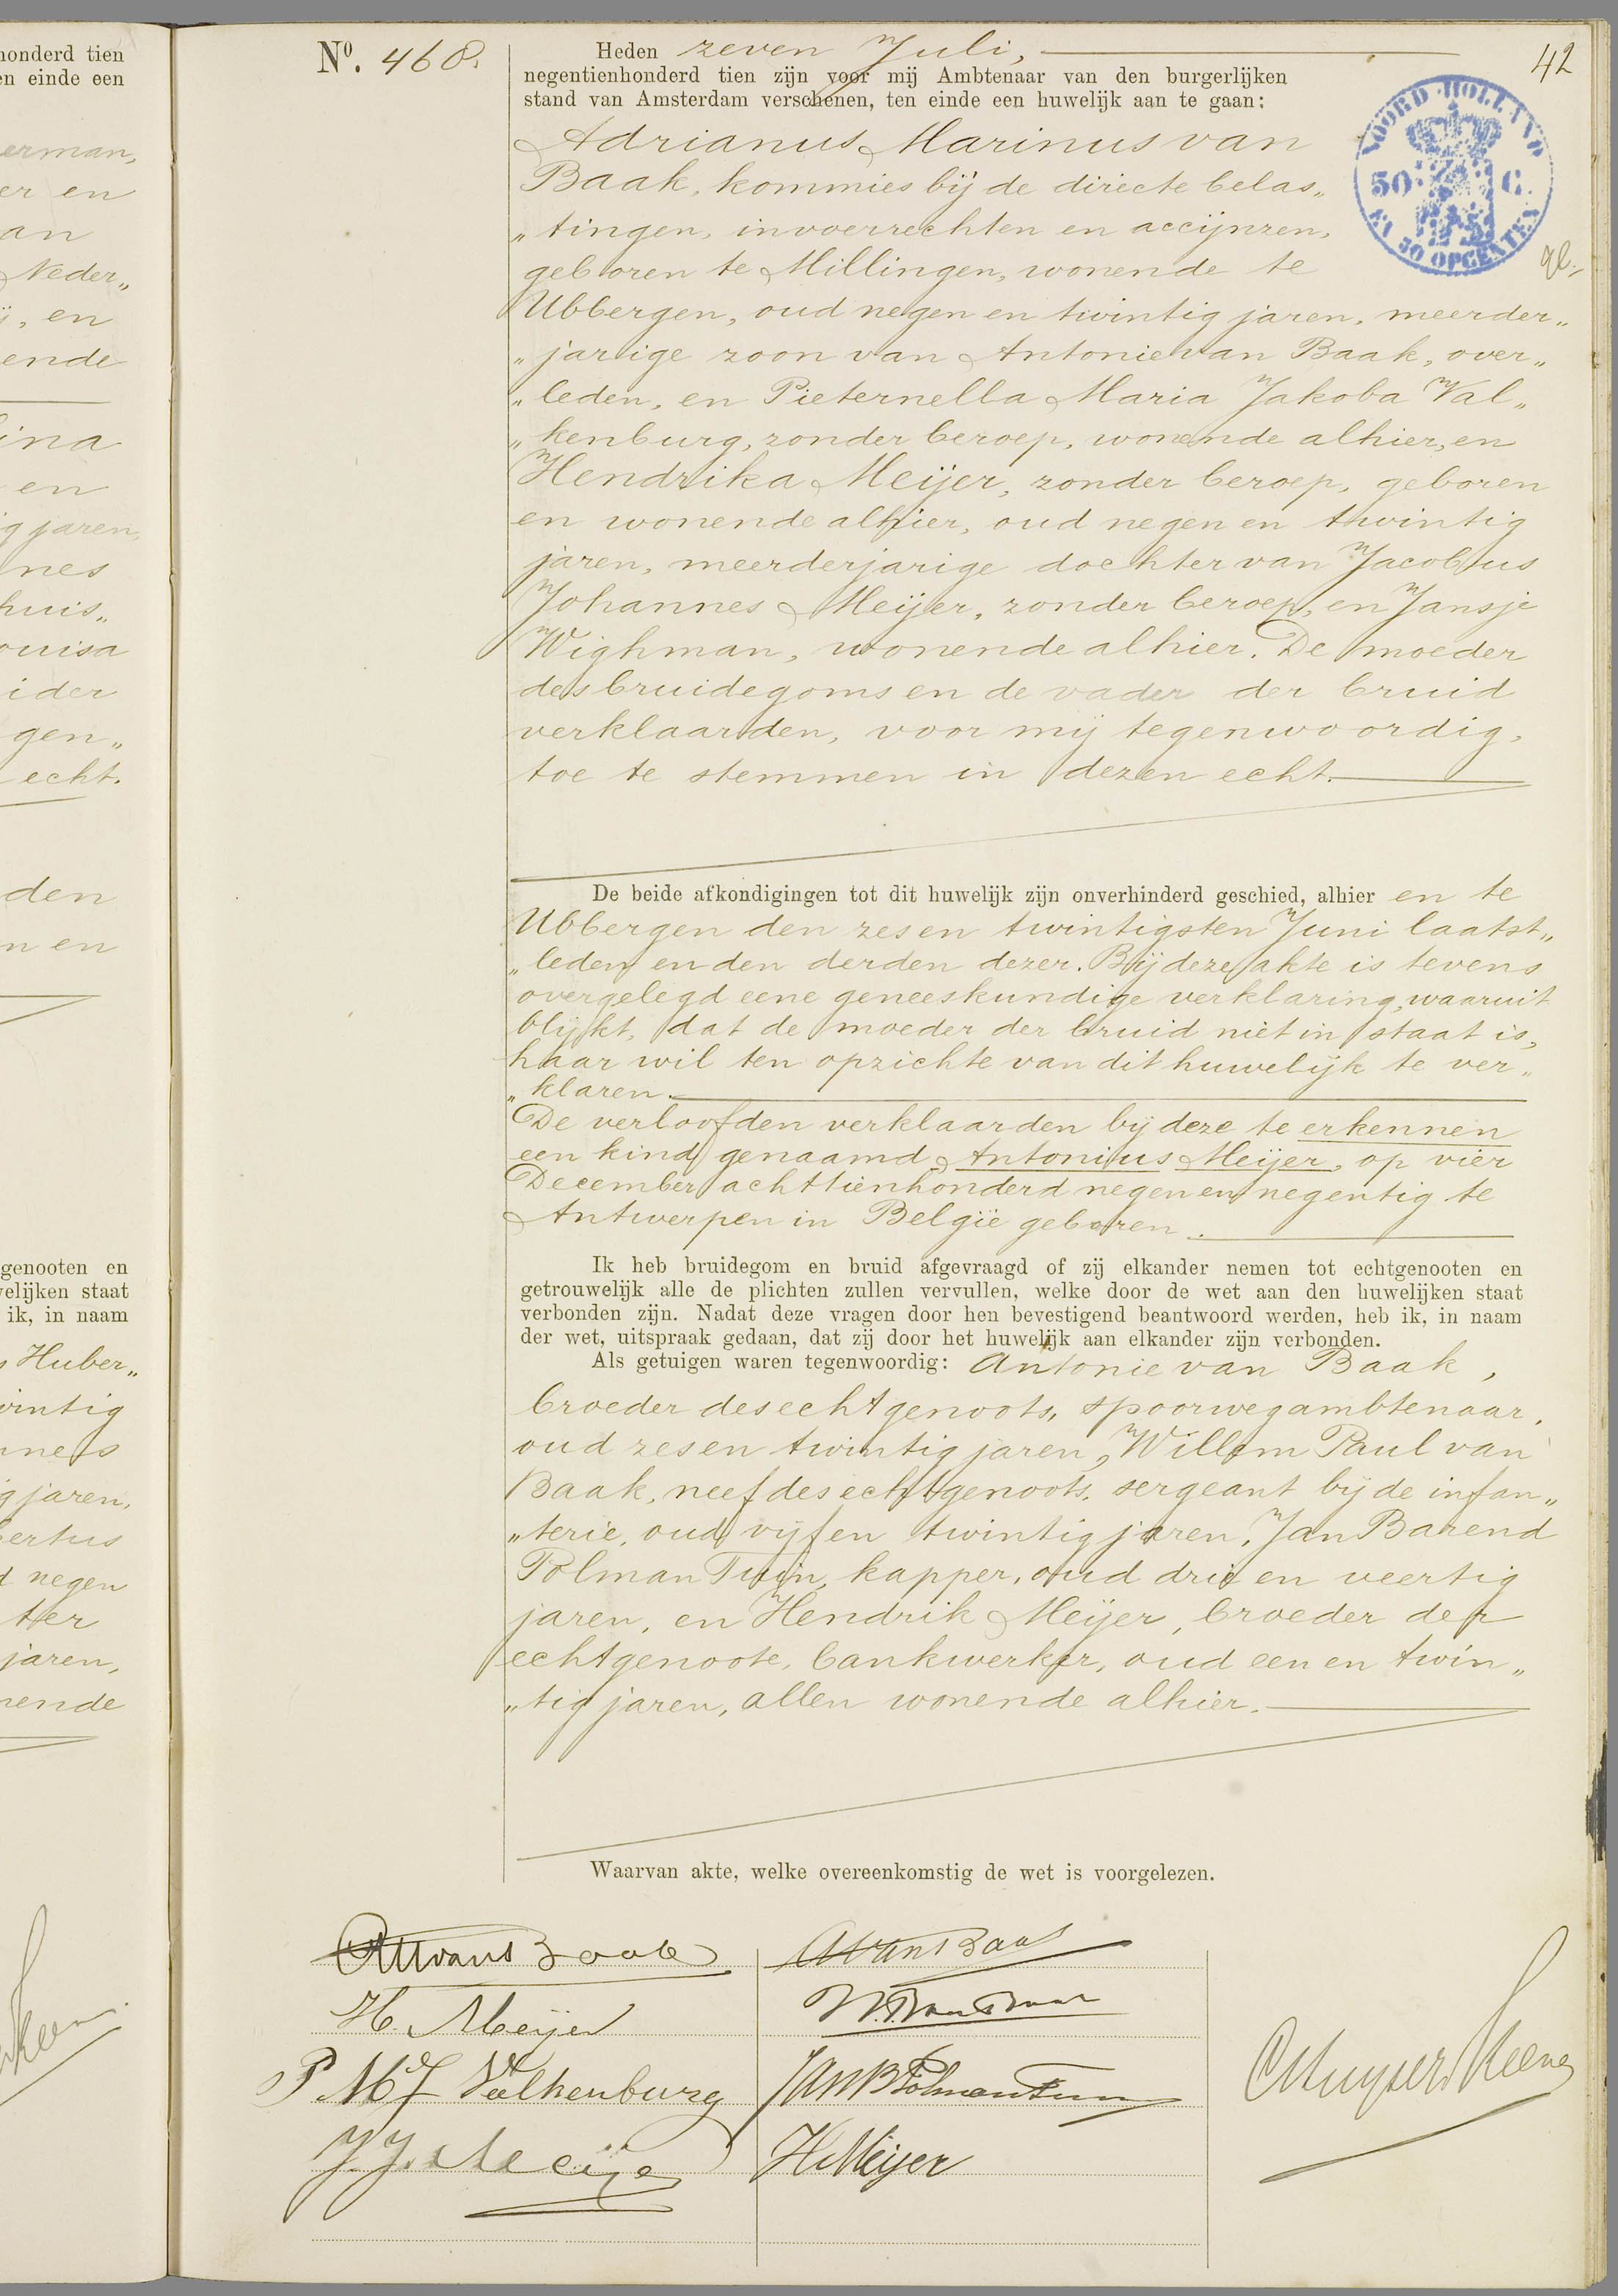 honderd tien
en einde een
erman,
er en
an
Neder„
, en
ende
ina
en
ig jaren,
nes
huis„
ouisa
ider
gen„
echt.
den
n en
genooten en
velijken staat
ik, in naam
Huber„
wintig
nnes
g jaren,
bertus
d negen
ter
jaren,
nende
42
No. 468.
Heden zeven Juli,
negentienhonderd tien zijn voor mij Ambtenaar van den burgerlijken
stand van Amsterdam verschenen, ten einde een huwelijk aan te gaan:
Adrianus Marinus van
Baak, kommies bij de directe belas„
„tingen, invoerrechten en accijnzen,
geboren te Millingen, wonende te
Ubbergen, oud negen en twintig jaren, meerder„
„jarige zoon van Antonie van Baak, over„
„leden, en Pieternella Maria Jakoba Val„
„kenburg, zonder beroep, wonende alhier, en
Hendrika Meijer, zonder beroep, geboren
en wonende alhier, oud negen en twintig
jaren, meerderjarige dochter van Jacobus
Johannes Meijer, zonder beroep, en Jansje
Wighman, wonende alhier. De moeder
des bruidegoms en de vader der bruid
verklaarden, voor mij tegenwoordig,
toe te stemmen in dezen echt.
NOORD-HOLLAND
50 C.
EN 50 OPCENTEN
De beide afkondigingen tot dit huwelijk zijn onverhinderd geschied, alhier en te
Ubbergen den zes en twintigsten Juni laatst„
„leden en den derden dezer. Bij deze akte is tevens
overgelegd eene geneeskundige verklaring, waaruit
blijkt, dat de moeder der bruid niet in staat is,
haar wil ten opzichte van dit huwelijk te ver„
„klaren.
De verloofden verklaarden bij deze te erkennen
een kind genaamd Antonius Meijer, op vier
December achttienhonderd negen en negentig te
Antwerpen in België geboren.
Ik heb bruidegom en bruid afgevraagd of zij elkander nemen tot echtgenooten en
getrouwelijk alle de plichten zullen vervullen, welke door de wet aan den huwelijken staat
verbonden zijn. Nadat deze vragen door hen bevestigend beantwoord werden, heb ik, in naam
der wet, uitspraak gedaan, dat zij door het huwelijk aan elkander zijn verbonden.
Als getuigen waren tegenwoordig: Antonie van Baak,
broeder des echtgenoots, spoorwegambtenaar,
oud zes en twintig jaren, Willem Paul van
Baak, neef des echtgenoots, sergeant bij de infan„
„terie, oud vijf en twintig jaren, Jan Barend
Polman Tuin, kapper, oud drie en veertig
jaren, en Hendrik Meijer, broeder der
echtgenoote, bankwerker, oud een en twin„
„tig jaren, allen wonende alhier.
Waarvan akte, welke overeenkomstig de wet is voorgelezen.
AM van Baak
H. Meijer
P M J Valkenburg
J. J. Meijer
A van Baak
W. P. van Baak
Jan B Polman Tuin
H Meijer